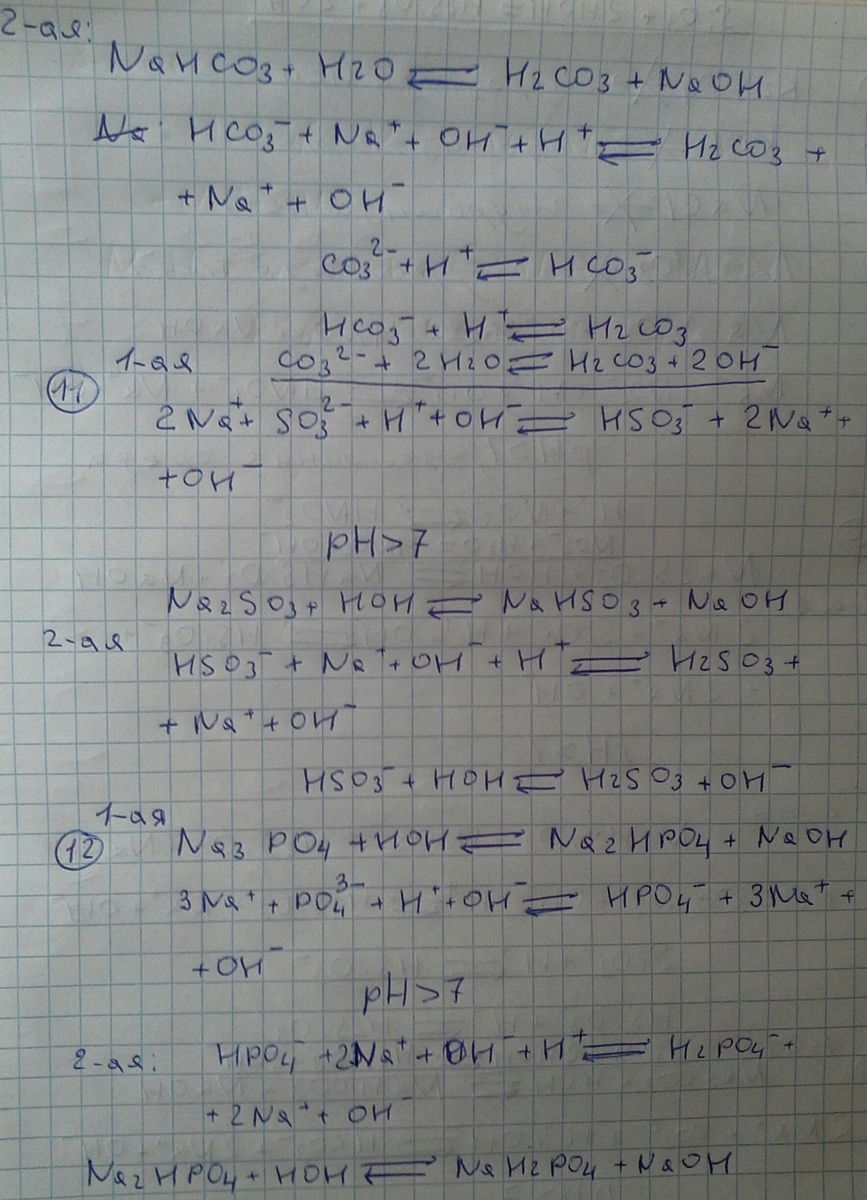 2-ая:
NaHCO₃ + H₂O ⇌ H₂CO₃ + NaOH
HCO₃⁻ + Na⁺ + OH⁻ + H⁺ ⇌ H₂CO₃ +
+ Na⁺ + OH⁻
CO₃²⁻ + H⁺ ⇌ HCO₃⁻
HCO₃⁻ + H⁺ ⇌ H₂CO₃
1-ая CO₃²⁻ + 2H₂O ⇌ H₂CO₃ + 2OH⁻
11 2Na⁺ + SO₃²⁻ + H⁺ + OH⁻ ⇌ HSO₃⁻ + 2Na⁺ +
+ OH⁻
pH > 7
Na₂SO₃ + HOH ⇌ NaHSO₃ + NaOH
2-ая HSO₃⁻ + Na⁺ + OH⁻ + H⁺ ⇌ H₂SO₃ +
+ Na⁺ + OH⁻
HSO₃⁻ + HOH ⇌ H₂SO₃ + OH⁻
1-ая
12 Na₃PO₄ + HOH ⇌ Na₂HPO₄ + NaOH
3Na⁺ + PO₄³⁻ + H⁺ + OH⁻ ⇌ HPO₄⁻ + 3Na⁺ +
+ OH⁻
pH > 7
2-ая: HPO₄⁻ + 2Na⁺ + OH⁻ + H⁺ ⇌ H₂PO₄⁻ +
+ 2Na⁺ + OH⁻
Na₂HPO₄ + HOH ⇌ NaH₂PO₄ + NaOH